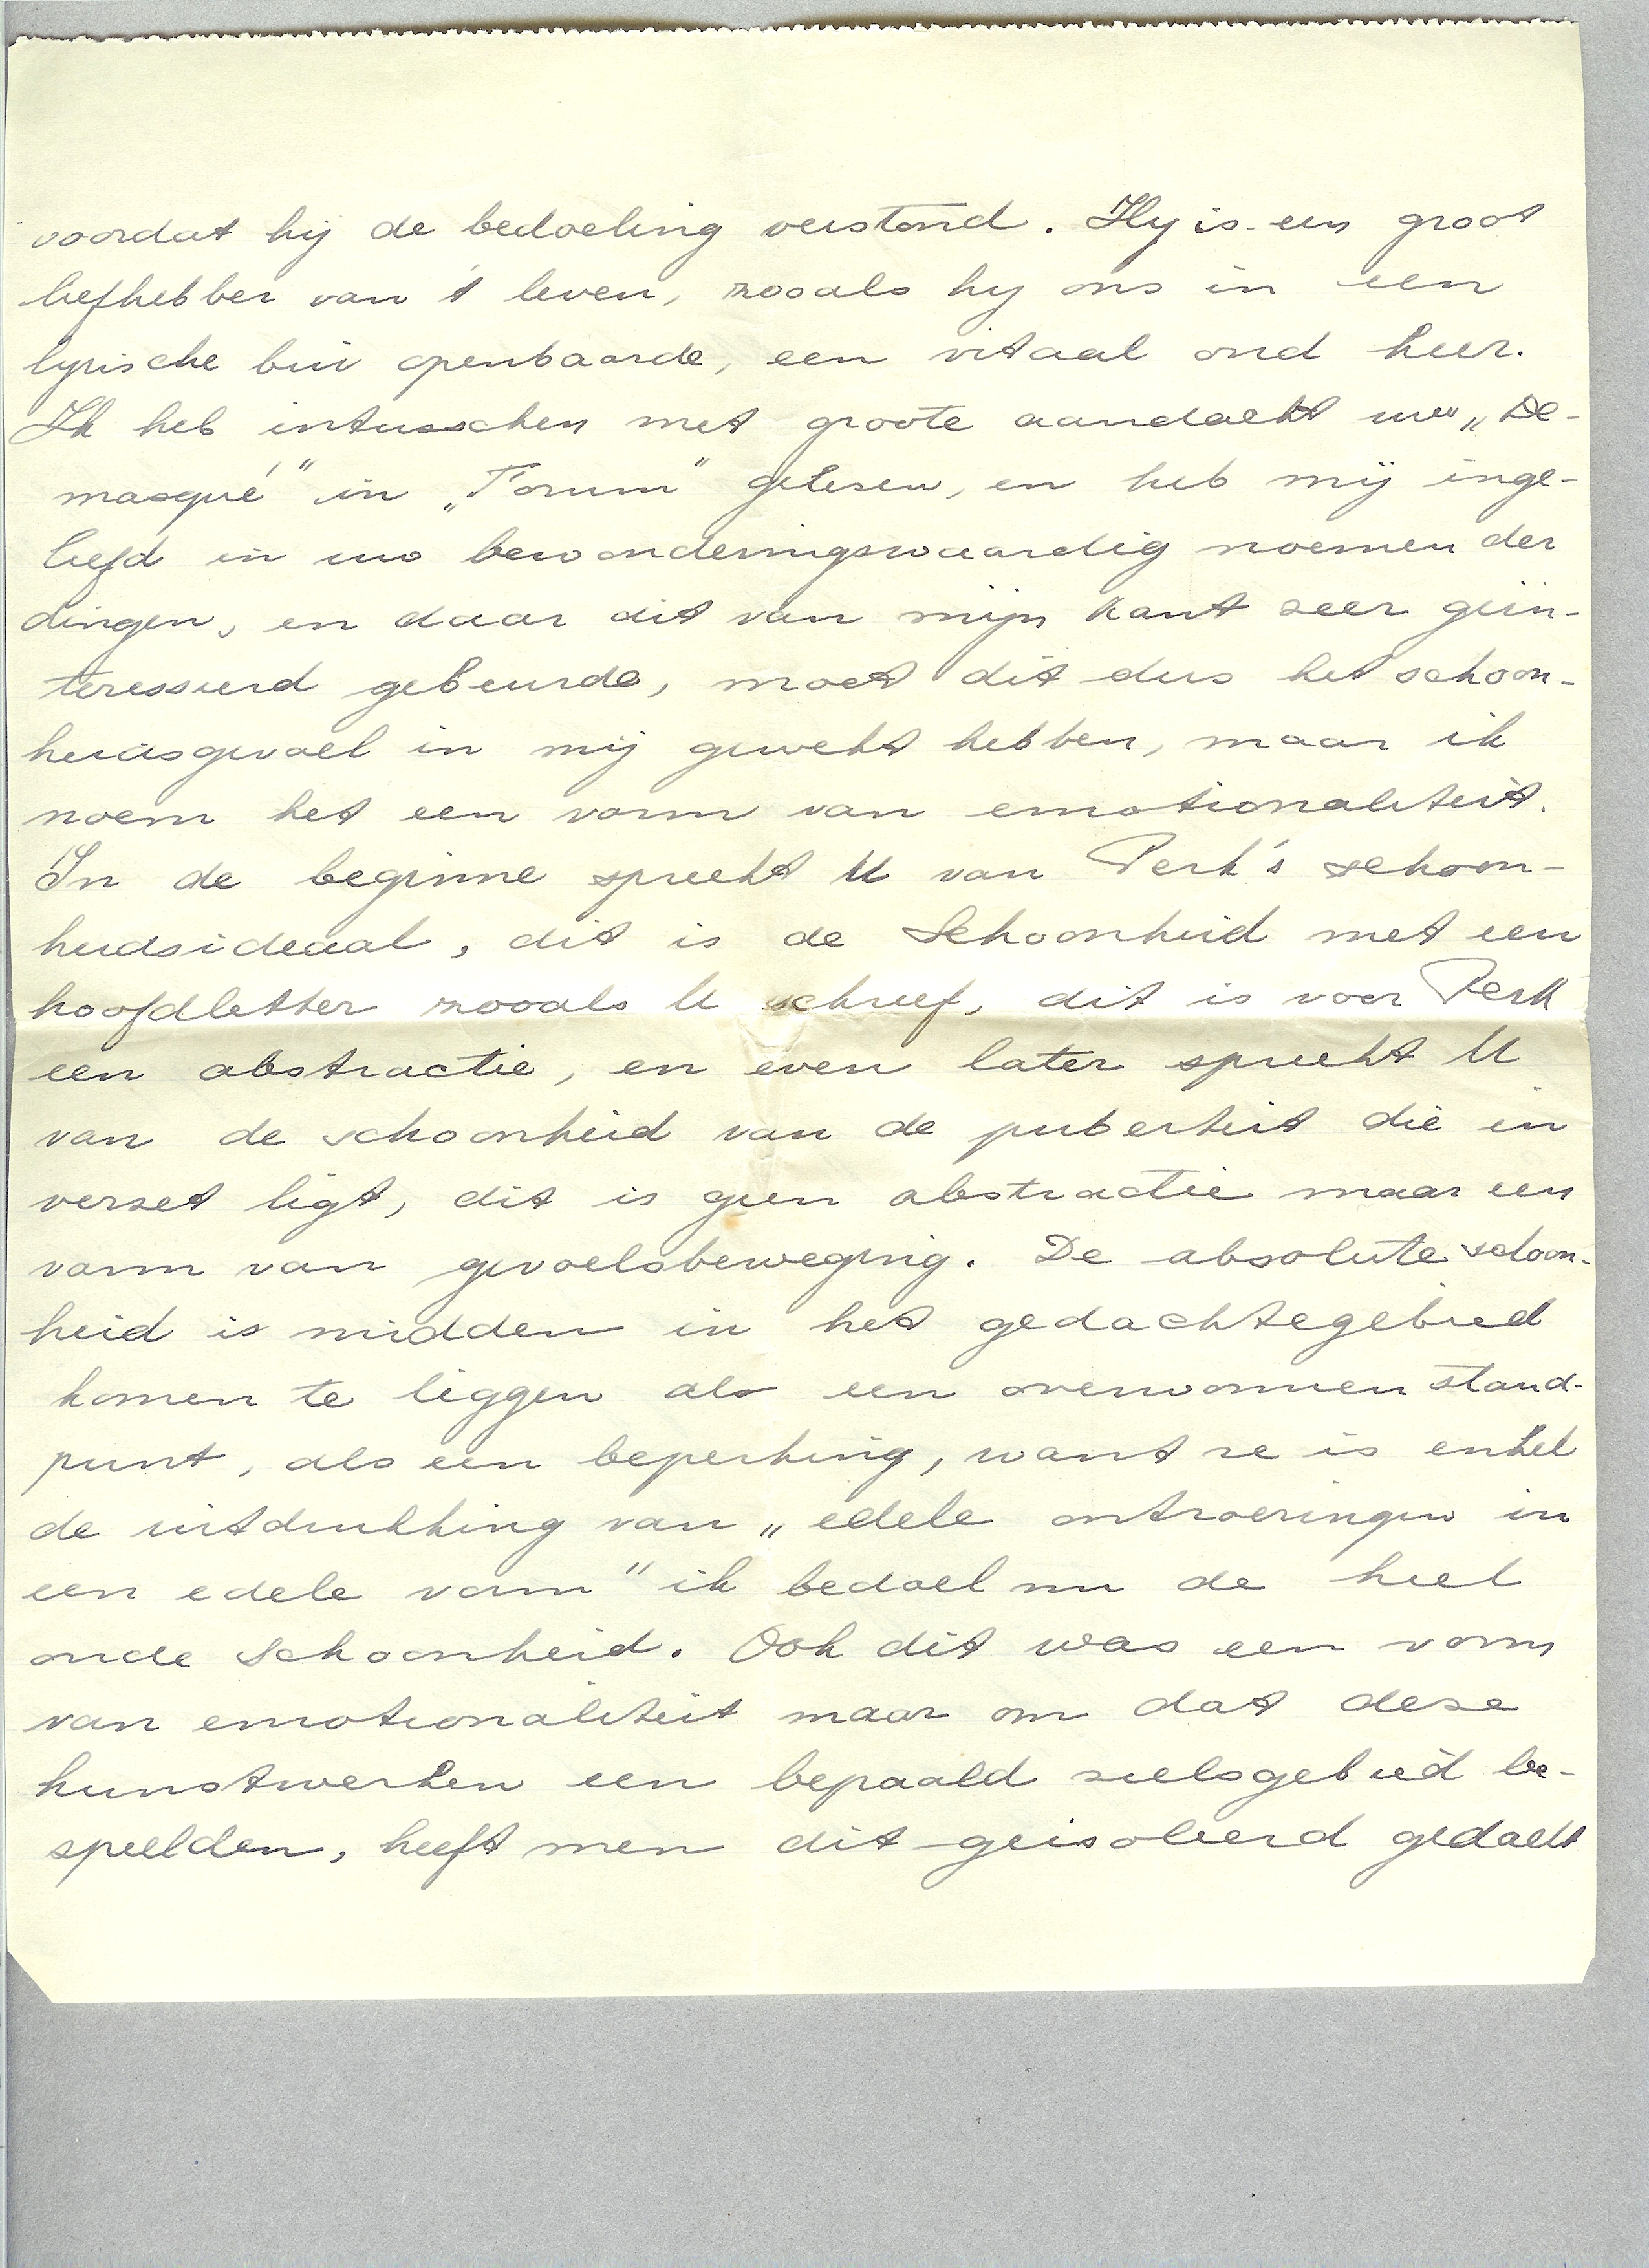 voordat hij de bedoeling verstond. Hy is een groot
liefhebber van 't leven, zooals hy ons in een
lyrische bui openbaarde, een vitaal oud heer.
Ik heb intusschen met groote aandacht uw „De-
masqué” in „Forum” gelezen, en heb mij inge-
leefd in uw bewonderingswaardig noemen der
dingen, en daar dit van mijn kant zeer geïn-
teresseerd gebeurde, moet dit dus het schoon-
heidsgevoel in mij gewekt hebben, maar ik
noem het een vorm van emotionaliteit.
In de beginne spreekt U van Perk's schoon-
heidsideaal, dit is de Schoonheid met een
hoofdletter zooals U schreef, dit is voor Perk
een abstractie, en even later spreekt U
van de schoonheid van de puberteit die in
verzet ligt, dit is geen abstractie maar een
vorm van gevoelsbeweging. De absolute schoon-
heid is midden in het gedachtegebied
komen te liggen als een overwonnen stand-
punt, als een beperking, want ze is enkel
de uitdrukking van „edele ontroeringen in
een edele vorm” ik bedoel nu de heel
oude Schoonheid. Ook dit was een vorm
van emotionaliteit maar om dat deze
kunstwerken een bepaald zielsgebied be-
speelden, heeft men dit geisoleerd gedacht